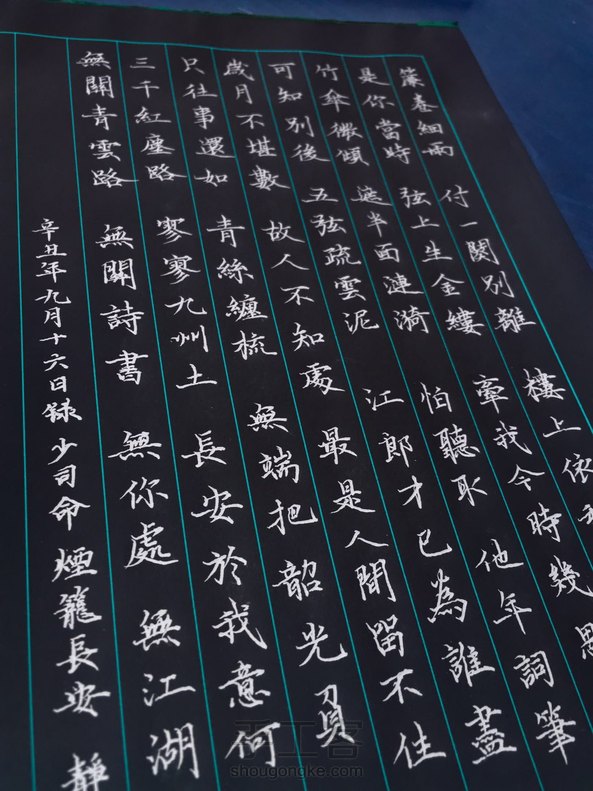 簾卷細雨 付一闋別離 樓上依
是你當時 弦上生金縷 牽我今時幾思
竹傘微傾 遮半面漣漪 怕聽取 他年詞筆
可知別後 五弦疏雲泥 江郎才已為誰盡
歲月不堪數 故人不知處 最是人間留不住
只往事還如 青絲纏梳 無端把韶光負
三千紅塵路 寥寥九州土 長安於我意何
無關青雲路 無關詩書 無你處 無江湖
辛丑年九月十六日錄少司命煙籠長安 靜
shougongke.com